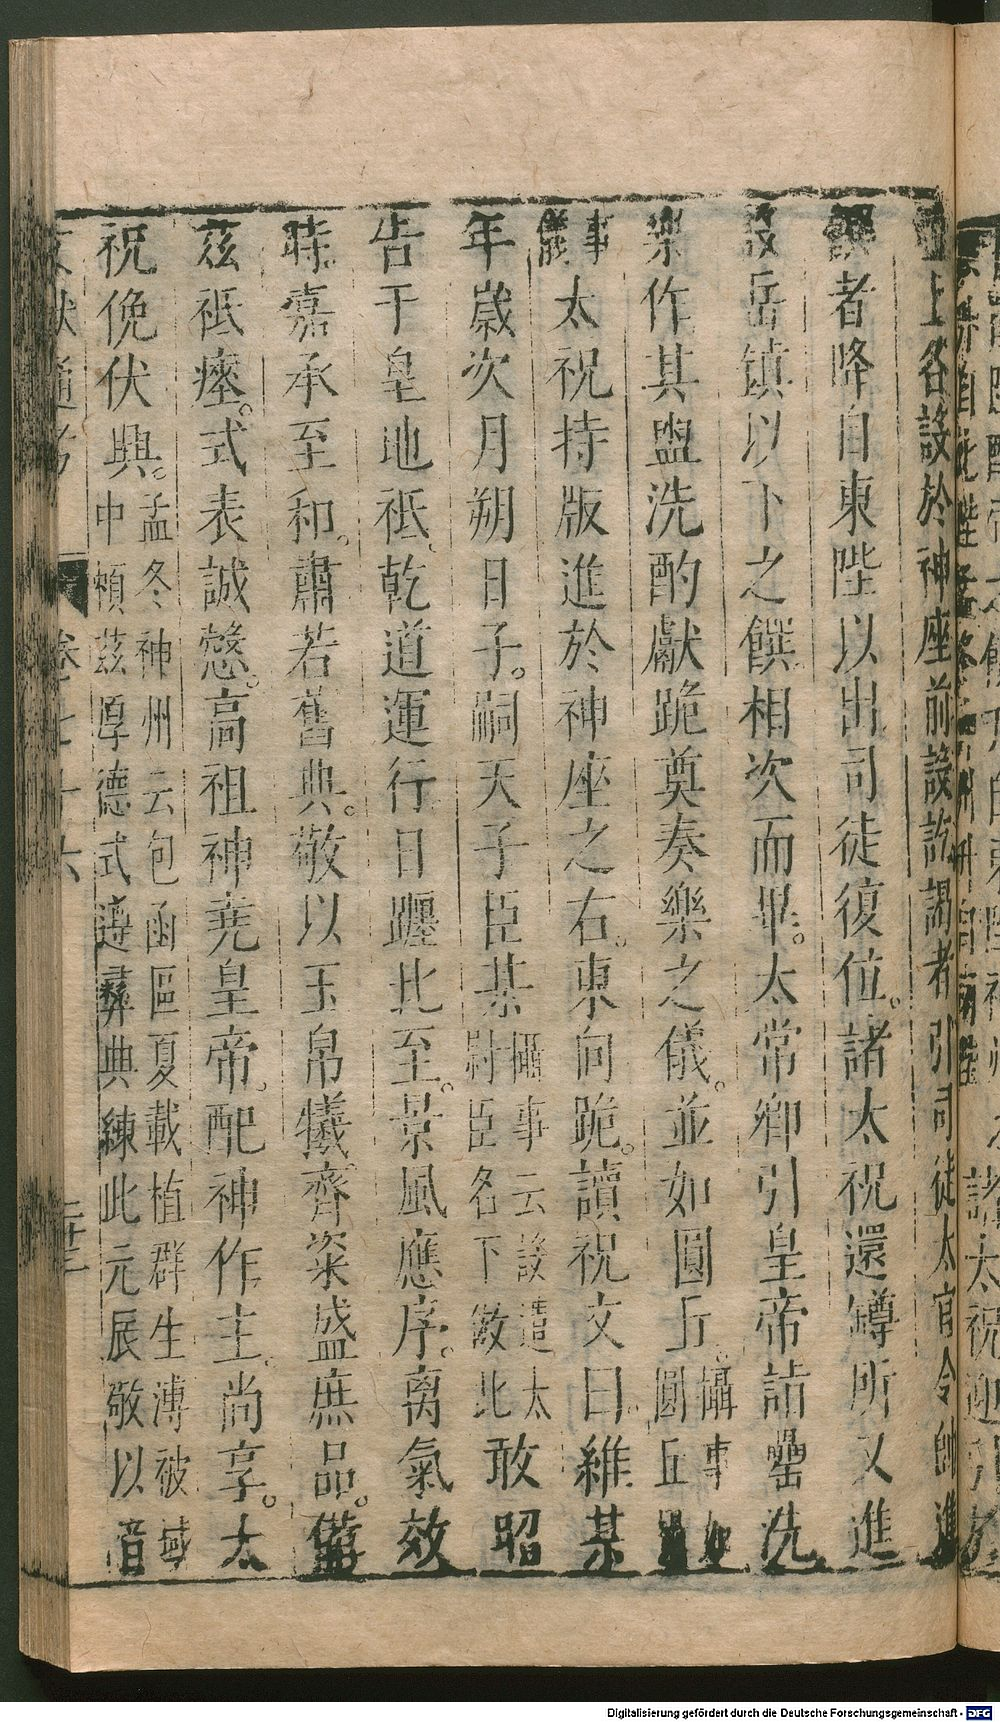 上各設於神座前設訖謁者引司徒太官令帥進
饌者降自東陛以出司徒復位。諸太祝還罇所又進
設岳鎮以下之饌相次而畢。太常卿引皇帝詣罍洗
樂作其盥洗酌獻跪奠奏樂之儀。並如圓丘。攝事如圓丘
事儀太祝持版進於神座之右。東向跪。讀祝文曰。維某
年歲次月朔日子。嗣天子臣某攝事云設遣太尉臣名下倣此敢昭
告于皇地祇、乾道運行日躔北至。景風應序。离氣效
時。嘉承至和。肅若舊典。敬以玉帛犧齊粢盛庶品。備
茲祇瘞。式表誠慤。高祖神堯皇帝。配神作主。尚享。太
祝俛伏興。孟冬神州云包函區夏載植群生溥被域中賴茲厚德式遵彝典練此元辰敬以
文獻通考 卷七十六
Digitalisierung gefördert durch die Deutsche Forschungsgemeinschaft - DFG